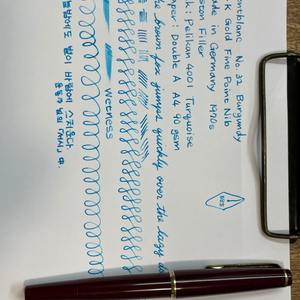 ontblanc No. 32 Burgundy
K Gold Fine Point Nib
ade in Germany 1970s
ston Filler
k: Pelikan 4001 Turquoise
aper: Double A A4 90 gsm
brown fox jumps quickly over the lazy
wetness
늘밤에도 별이 바람에 스치운다.
윤동주 님의 「서시」 中.